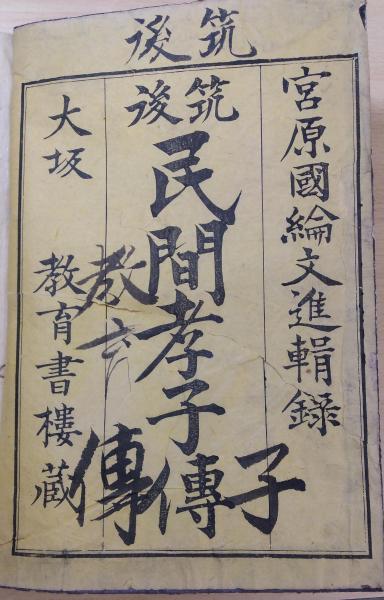 後筑
宮原國綸文進輯錄
筑後
民間孝子傳
大坂
教育書樓藏
教
傳
子